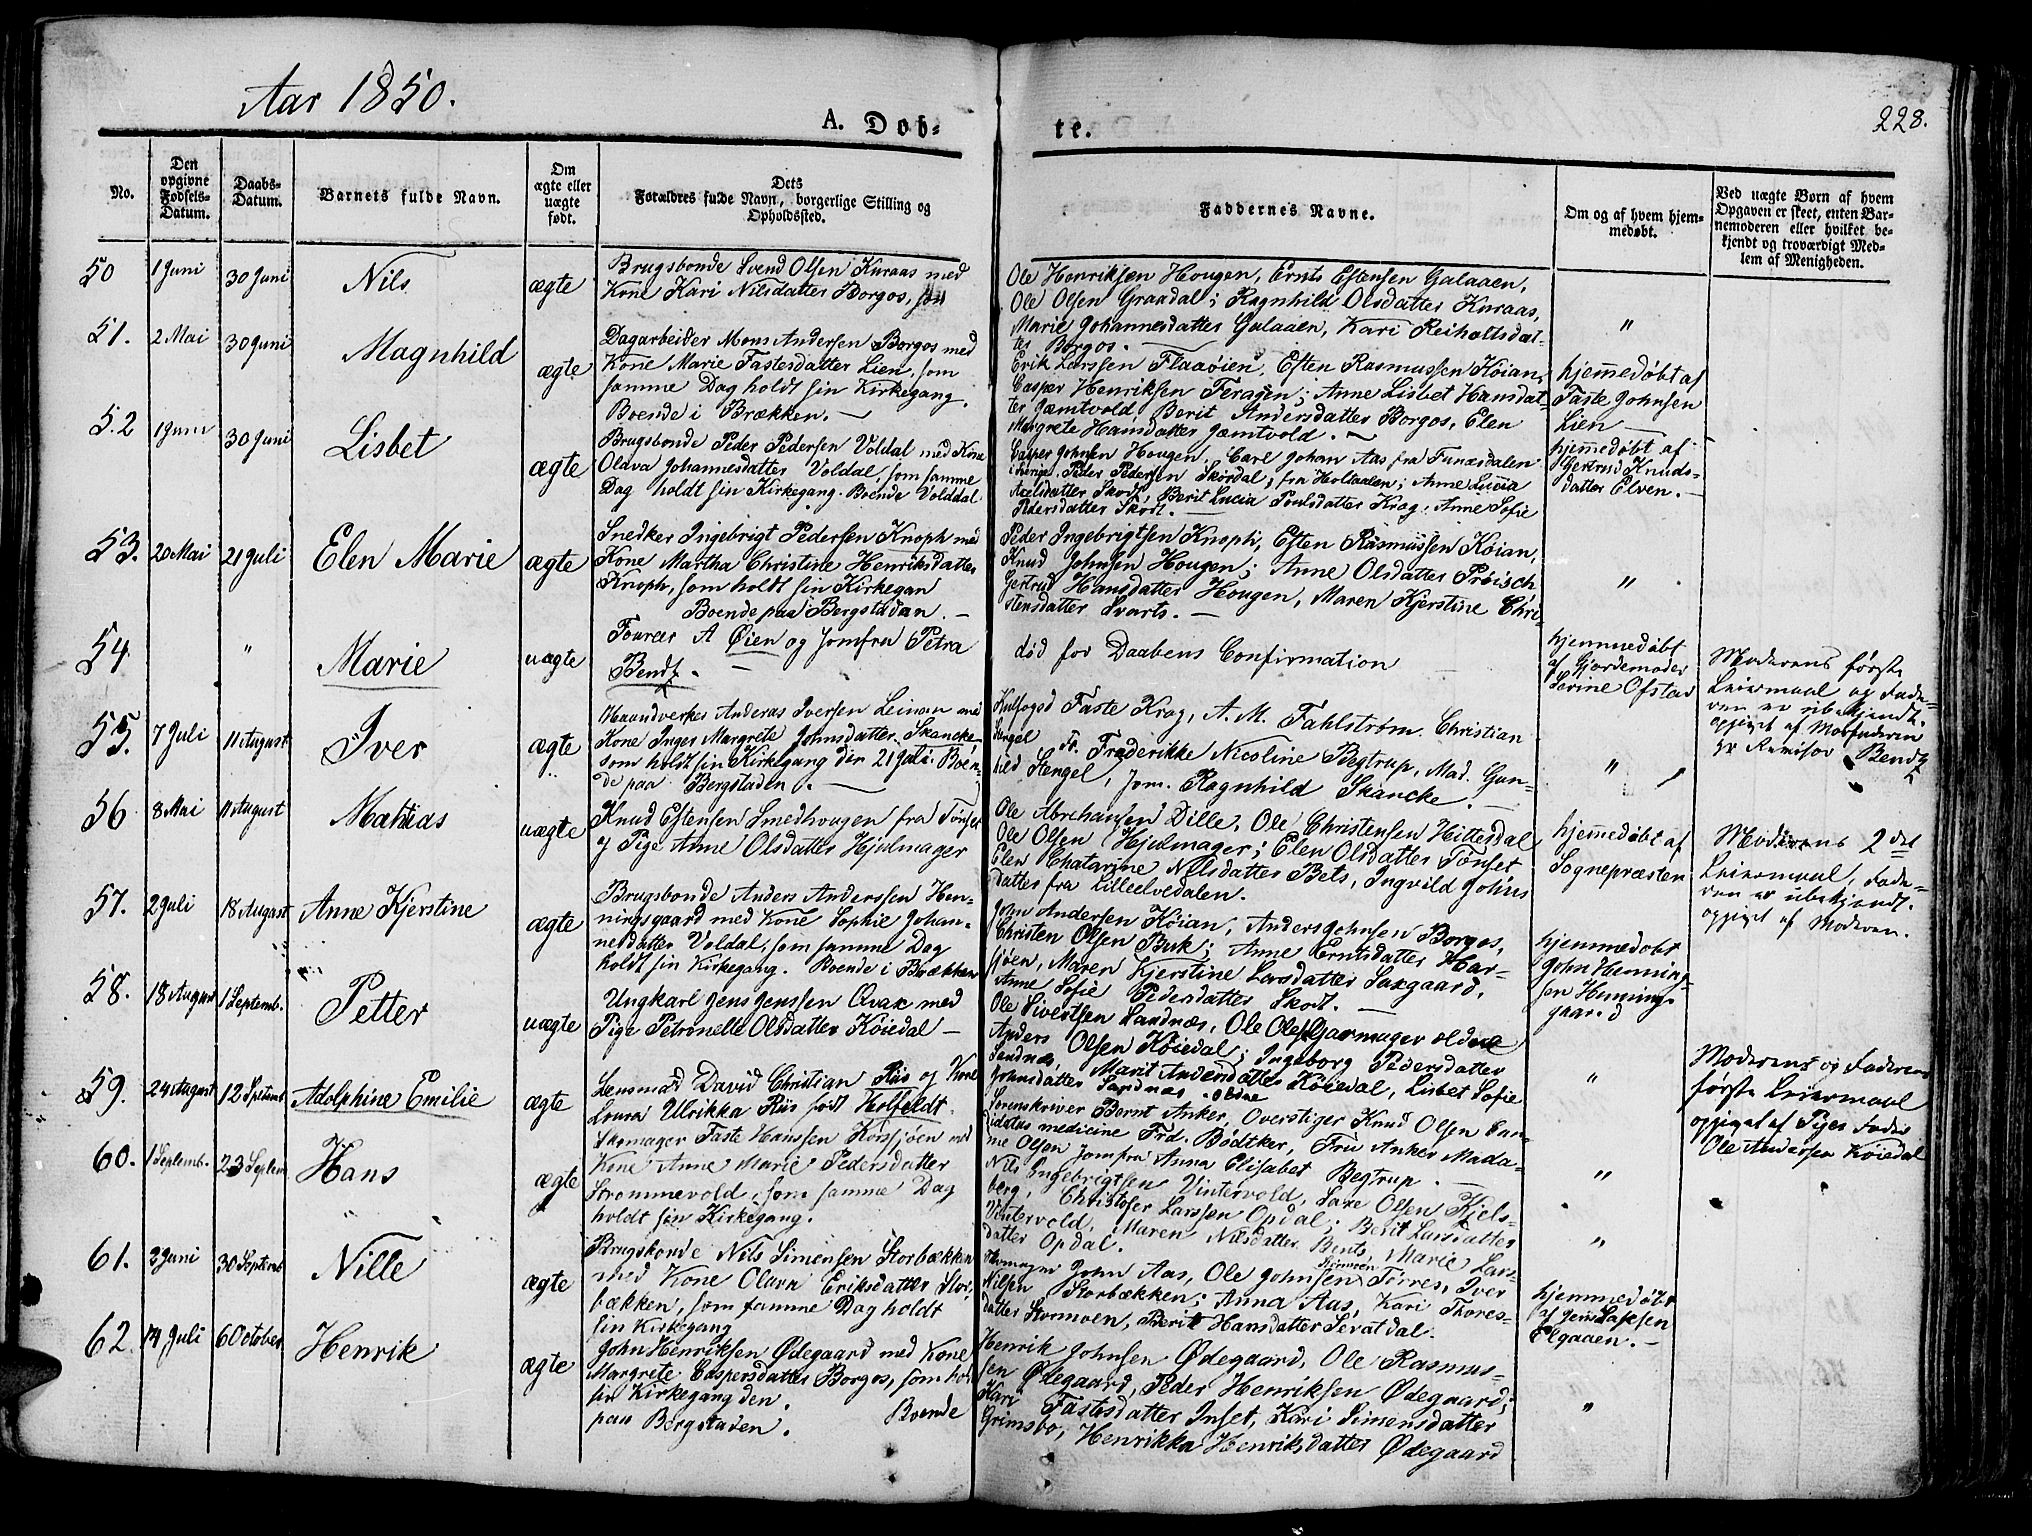 Aar 1850.
A. Døb-
te.
228.
No.
Den opgivne Fødsels-Datum.
Daabs-Datum.
Barnets fulde Navn.
Om ægte eller uægte født.
Dets
Forældres fulde Navn, borgerlige Stilling og
Opholdssted.
Faddernes Navne.
Om og af hvem hjem-
medøbt.
Ved uægte Børn af hvem
Opgaven er skeet, enten Bar-
nemoderen eller hvilket be-
kjendt og troværdigt Med-
lem af Menigheden.
50 1 Juni 30 Juni Nils ægte
Brugsbonde Svend Olsen Kuraas med
Kone Kari Nilsdatter Borgos, som
Ole Henriksen Hougen, Ernts Estensen Galaaen,
Ole Olsen Graadal; Ragnhild Olsdatter Kuraas,
Marie Johannesdatter Galaaen, Kari Reiholtsdat-
ter Borgos. —
"
51. 2 Mai 30 Juni Magnhild ægte
Dagarbeider Mons Andersen Borgos med
Kone Marie Fastesdatter Lien, som
samme Dag holdt sin Kirkegang.
Boende i Brækken. —
Erik Larssen Flaaøien, Esten Rasmussen Køian,
Casper Henriksen Feragen; Anne Lisbet Hansdat-
ter Jæmtvold Berit Andersdatter Borgos, Elen
Margrete Hansdatter Jæmtvold. —
hjemmedøbt af
Faste Johnsen
Lien —
52 1 Juni 30 Juni Lisbet ægte
Brugsbonde Peder Pedersen Voldal med Kone
Oldva Johannesdatter Voldal, som samme
Dag holdt sin Kirkegang. Boende Volddal
Casper Johnsen Hougen, Carl Johan Aas fra Funæsdalen
i Sverige. Peder Pedersen Skørdal, fra Holtaalen; Anne Lucia
Axelsdatter Skott, Berit Lucia Poulsdatter Krag, Anne Sofie
Pedersdatter Skott. —
hjemmedøbt af
Gertrud Knuds-
datter Elven. —
53. 20 Mai 21 Juli Elen Marie ægte
Snedker Ingebrigt Pedersen Knoph med
Kone Martha Christine Henriksdatter
Knoph, som holdt sin Kirkegan
Boende paa Bergstadan. —
Peder Ingebrigtsen Knoph, Esten Rasmussen Køian,
Knud Johnsen Hougen; Anne Olsdatter Prøisch
Gertrud Hansdatter Hougen, Maren Kjerstine Chri-
stensdatter Svarts. —
"
54 " Marie uægte
Fourer A Øien og Jomfru Petra
Bendz. —
død for Daabens Confirmation
hjemmedøbt
af Gjordemoder
Serine Ofstad
Moderens første
Leiermaal og Fade-
ren er ubekjendt.
opgivet af Morfaderen
gr Revisor Bendz
55. 7 Juli 11 August Iver ægte
Haandverker Anderas Iversen Leinan med
Kone Inger Margrete Johnsdatter Skancke
som holdt sin Kirkegang den 21 Juli. Boen-
de paa Bergstaden. —
Kulfogd Faste Krog, A. M. Fahlstrøm. Christian
Stengel Fr. Frederikke Nicoline Begtrup, Mad. Gun-
hild Stengel, Jom. Ragnhild Skancke. —
"
56 8 Mai 11 August Mathias uægte
Knud Estensen Smedhougen fra Tønset
og Pige Anne Olsdatter Hjulmager
Ole Abrahamsen Dille, Ole Christensen Hittesdal
Ole Olsen Hjulmager; Elen Olsdatter Tønset
Elen Chatarine Nilsdatter Bets, Ingvild Johns
datter fra Lilleelvedalen.
hjemmedøbt af
Sognepræsten
Moderens 2det
Leiermaal, Fade-
ren er ubekjendt.
opgivet af Moderen.
57. 2 Juli 18 August Anne Kjerstine ægte
Brugsbonde Anders Anderssen Hen-
ningsgaard med Kone Sophie Johan-
nesdatter Voldal, som samme Dag
holdt sin Kirkegang. Boende i Brækken
John Andersen Køian, Anders Johnsen Borgos,
Christen Olsen Buk; Anne Erntsdatter Har-
sjøen, Maren Kjerstine Larsdatter Saxgaard,
Anne Sofie Pedersdatter Skott. —
hjemmedøbt
John Henning-
sen Henning-
gaard
58. 18 August 1 Septemb. Petter uægte
Ungkarl Jens Jenssen Qvax med
Pige Petronelle Olsdatter Køiedal —
Ole Sivertsen Sandnæs, Ole Olsen Garmager Oldne
Anders Olsen Køiedal; Ingeborg Pedersdatter
Sandnæs Marit Andersdatter Køiedal, Lisbet Sofie
Johnsdatter Sandnæs Oldne
"
Moderens og Faderens
første Leiermaal
opgivet af Piges Fader
Ole Andersen Køiedal
59. 24 August 12 Septemb Adolphine Emilie ægte
Lensmad David Christian Riis og Kone
Loura Ulrikka Riis født Holfeldt.
Sorenskriver Bernt Anker, Overstiger Knud Olsen Can-
didatus medicine Frd. Bødtker, Fru Anker Mada-
me Olsen Jomfru Anna Elisabet Begtrup. —
"
60. 1 Septemb. 23 Septem Hans ægte
Skomager Faste Hanssen Korssjøen med
Kone Anne Marie Pedersdatter
Strømmevold, som samme Dag
holdt sin Kirkegang.
Nils Ingebrigtsen Vintervold, Lars Olsen Kjels-
berg, Christofer Larssen Opdal; Berit Larsdatter
Vintervold, Maren Nilsdatter Bents, Marie Lars-
datter Opdal.
"
61. 3 Juni 30 Septemb Nille ægte
Brugsbonde Nils Simensen Storbækken
med Kone Olava Eriksdatter Stor-
bækken, som samme Dag holdt
sin Kirkegang
John Aas, Ole Johnsen Tørres, Iver
Stormoen
Nilsen Storbækken; Anna Aas, Kari Thores-
datter Stormoen, Berit Hansdatter Sevatdal.
hjemmedøbt
af Jens Larsen
Elgaaen. —
62. 14 Juli 6 October Henrik ægte
John Henriksen Ødegaard med Kone
Margrete Caspersdatter Borgos, som hol
sin Kirkegang den.
paa Bergstaden. Boende
Henrik Johnsen Ødegaard, Ole Rasmus-
sen Ødegaard, Peder Henriksen Ødegaard;
Kari Fastesdatter Inset, Kari Simensdatter
Grimsbo, Henrikka Henriksdatter Ødegaard
"